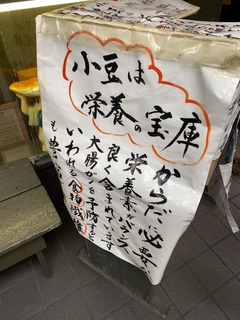 小豆は
栄養の宝庫
からだに必要な
栄養素がバランス
良く含まれています
大腸がんを予防すると
いわれる食物繊維